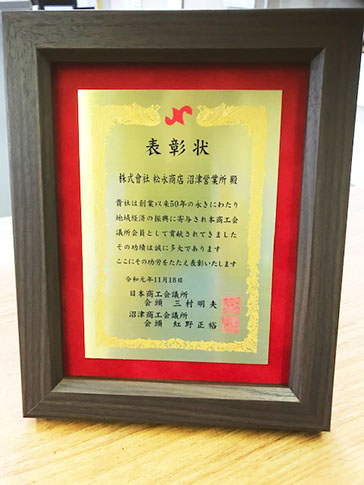 表彰状
株式會社 松永商店 沼津営業所 殿
貴社は創業以来50年の永きにわたり
地域経済の振興に寄与され本商工会
議所会員として貢献されてきました
その功績は誠に多大であります
ここにその功労をたたえ表彰いたします
令和元年11月18日
日本商工会議所
会頭 三村明夫
沼津商工会議所
会頭 紅野正裕